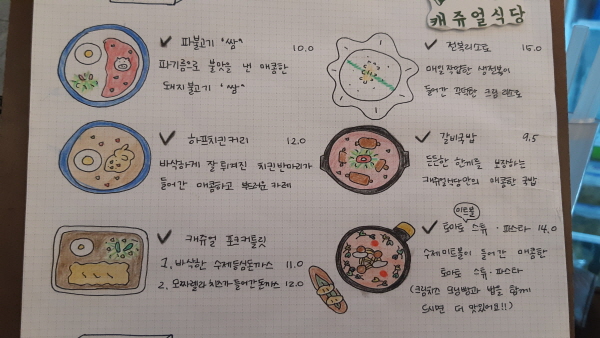 캐쥬얼식당
파불고기 "쌈" 10.0
파기름으로 불맛을 낸 매콤한
돼지불고기 "쌈"
전복리소토 15.0
매일 작업한 생전복이
들어간 꾸덕한 크림 리소토
하프치킨커리 12.0
바삭하게 잘 튀겨진 치킨 반마리가
들어간 매콤하고 부드러운 카레
갈비국밥 9.5
든든한 한끼를 보장하는
캐쥬얼식당만의 매콤한 국밥
캐쥬얼 포크커틀릿
1. 바삭한 수제등심돈까스 11.0
2. 모짜렐라 치즈가 들어간 돈까스 12.0
미트볼
토마토 스튜 · 파스타 14.0
수제 미트볼이 들어간 매콤한
토마토 스튜 · 파스타
(크림치즈 크닝빵과 밥을 함께
드시면 더 맛있어요!!)